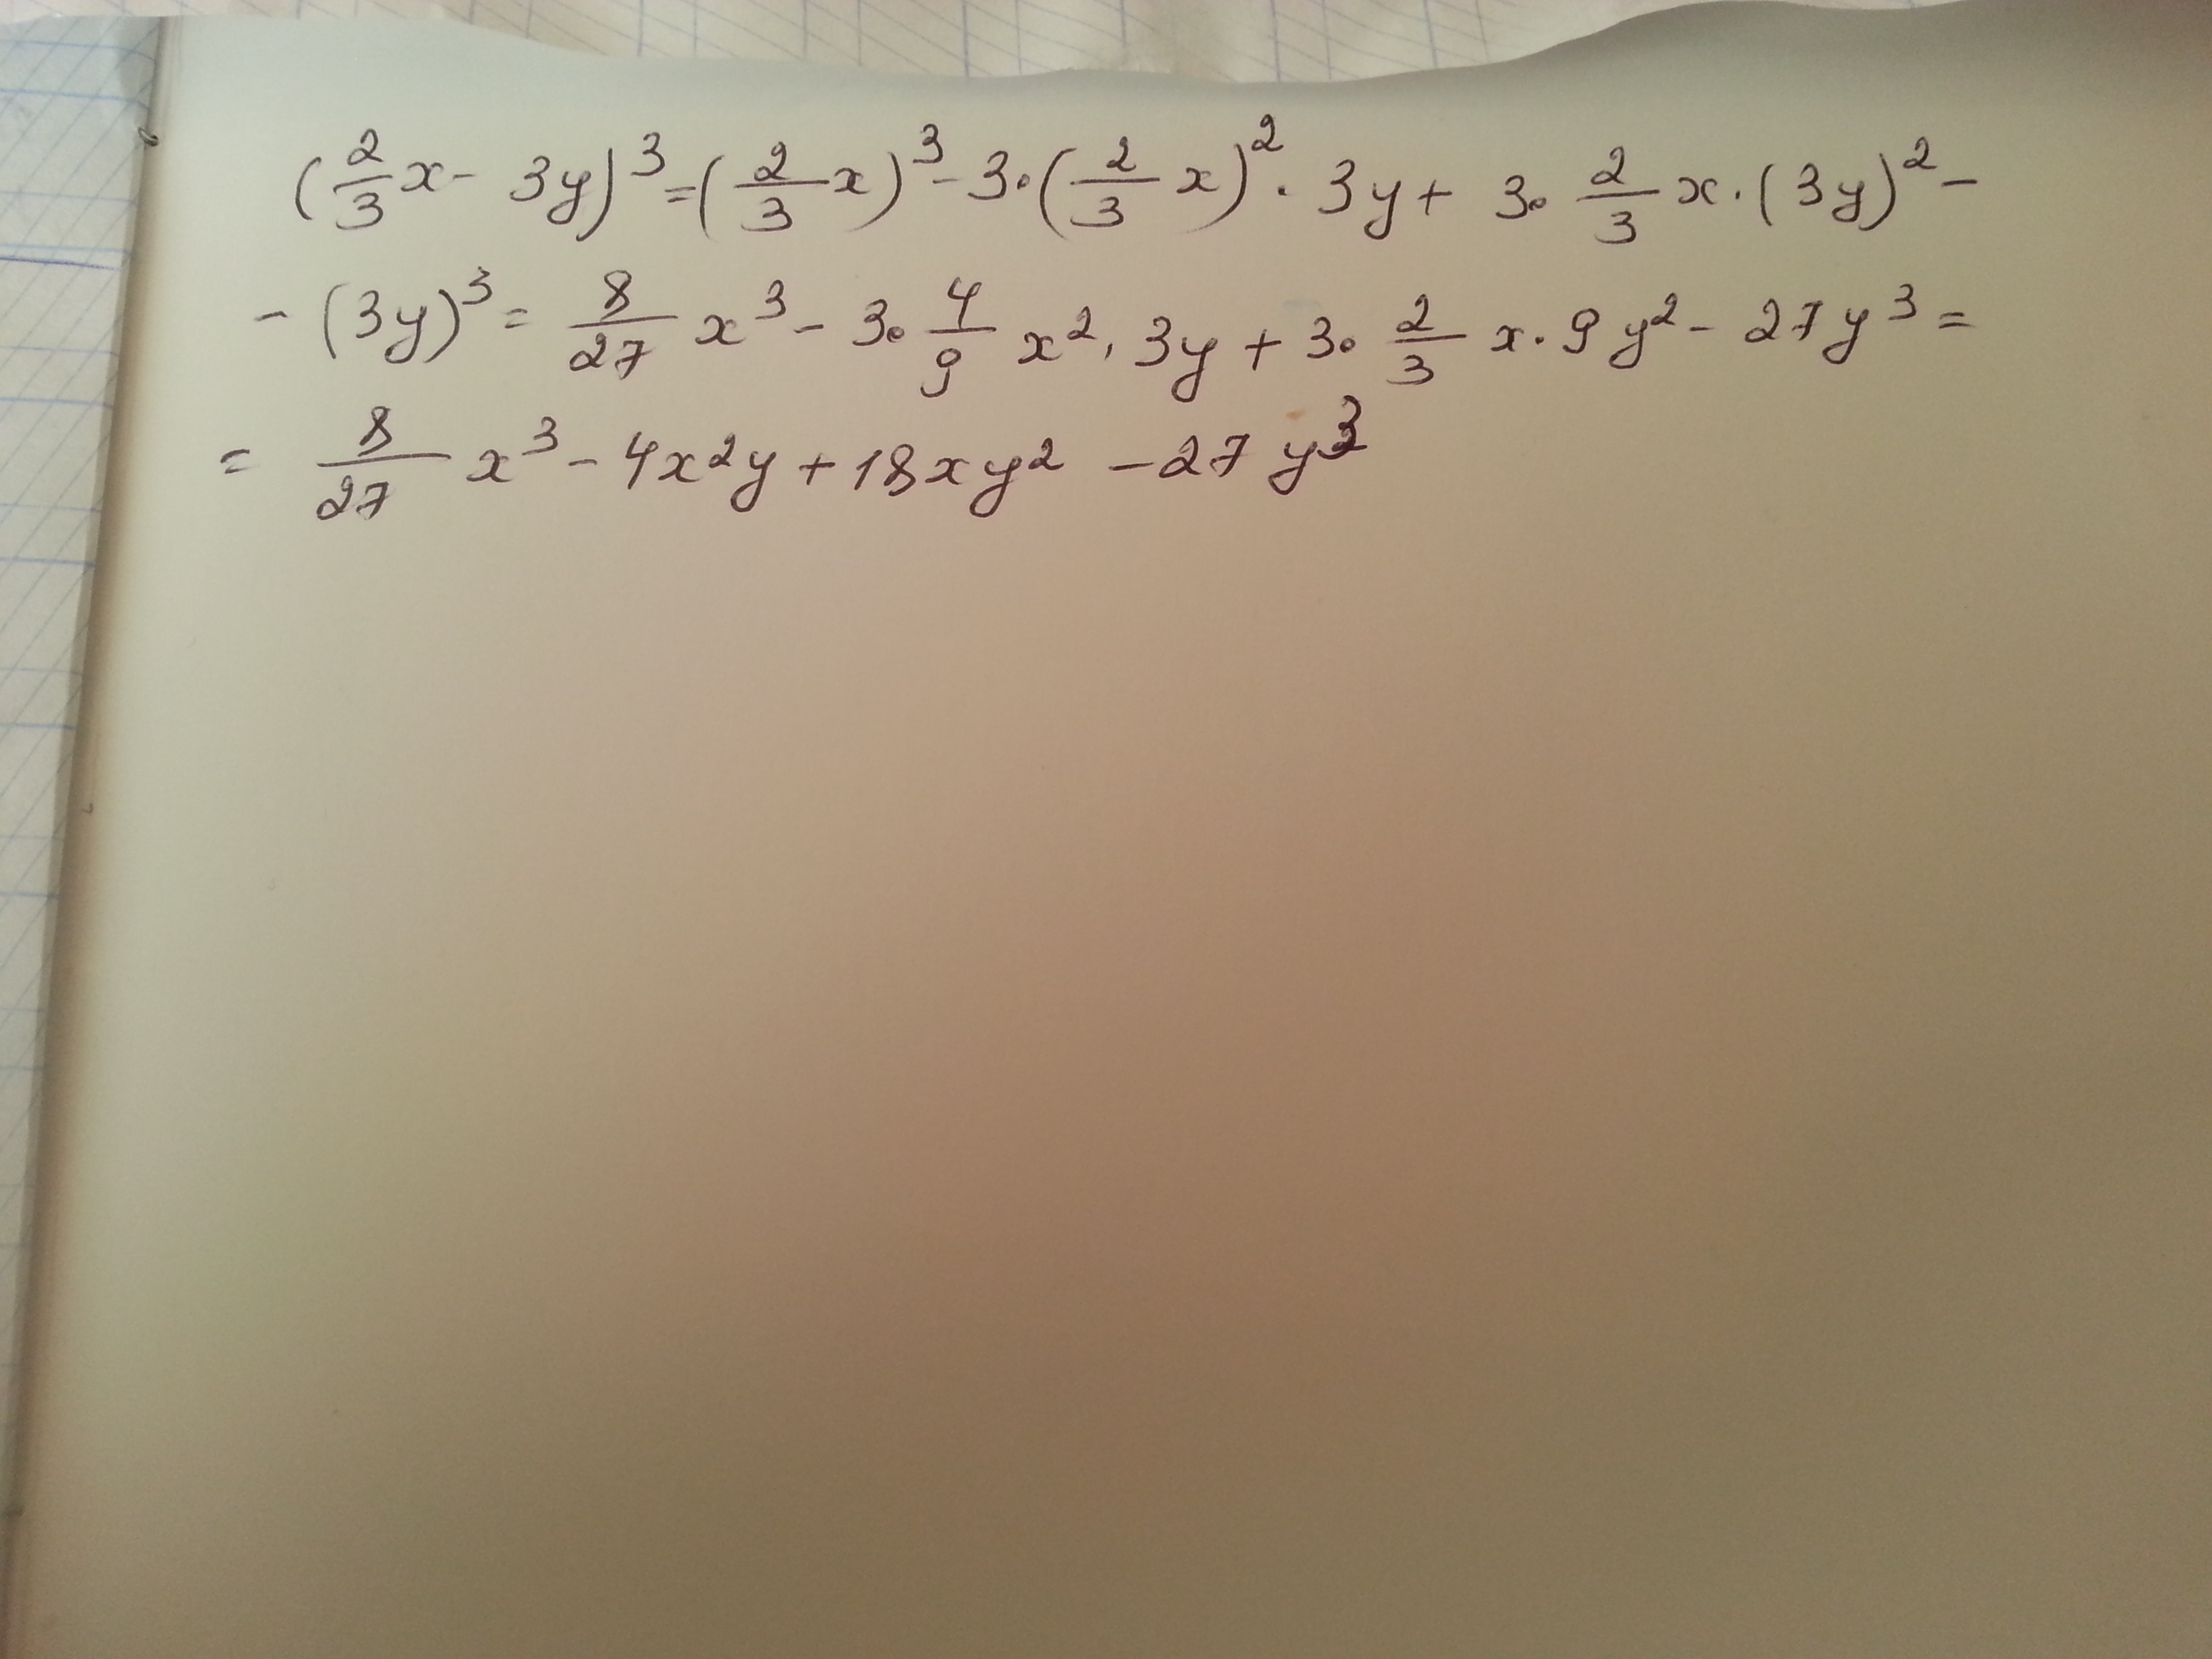 (2/3 x - 3y)³ = (2/3 x)³ - 3·(2/3 x)² · 3y + 3· 2/3 x · (3y)² -
- (3y)³ = 8/27 x³ - 3· 4/9 x² · 3y + 3· 2/3 x · 9y² - 27y³ =
= 8/27 x³ - 4x²y + 18xy² - 27y³